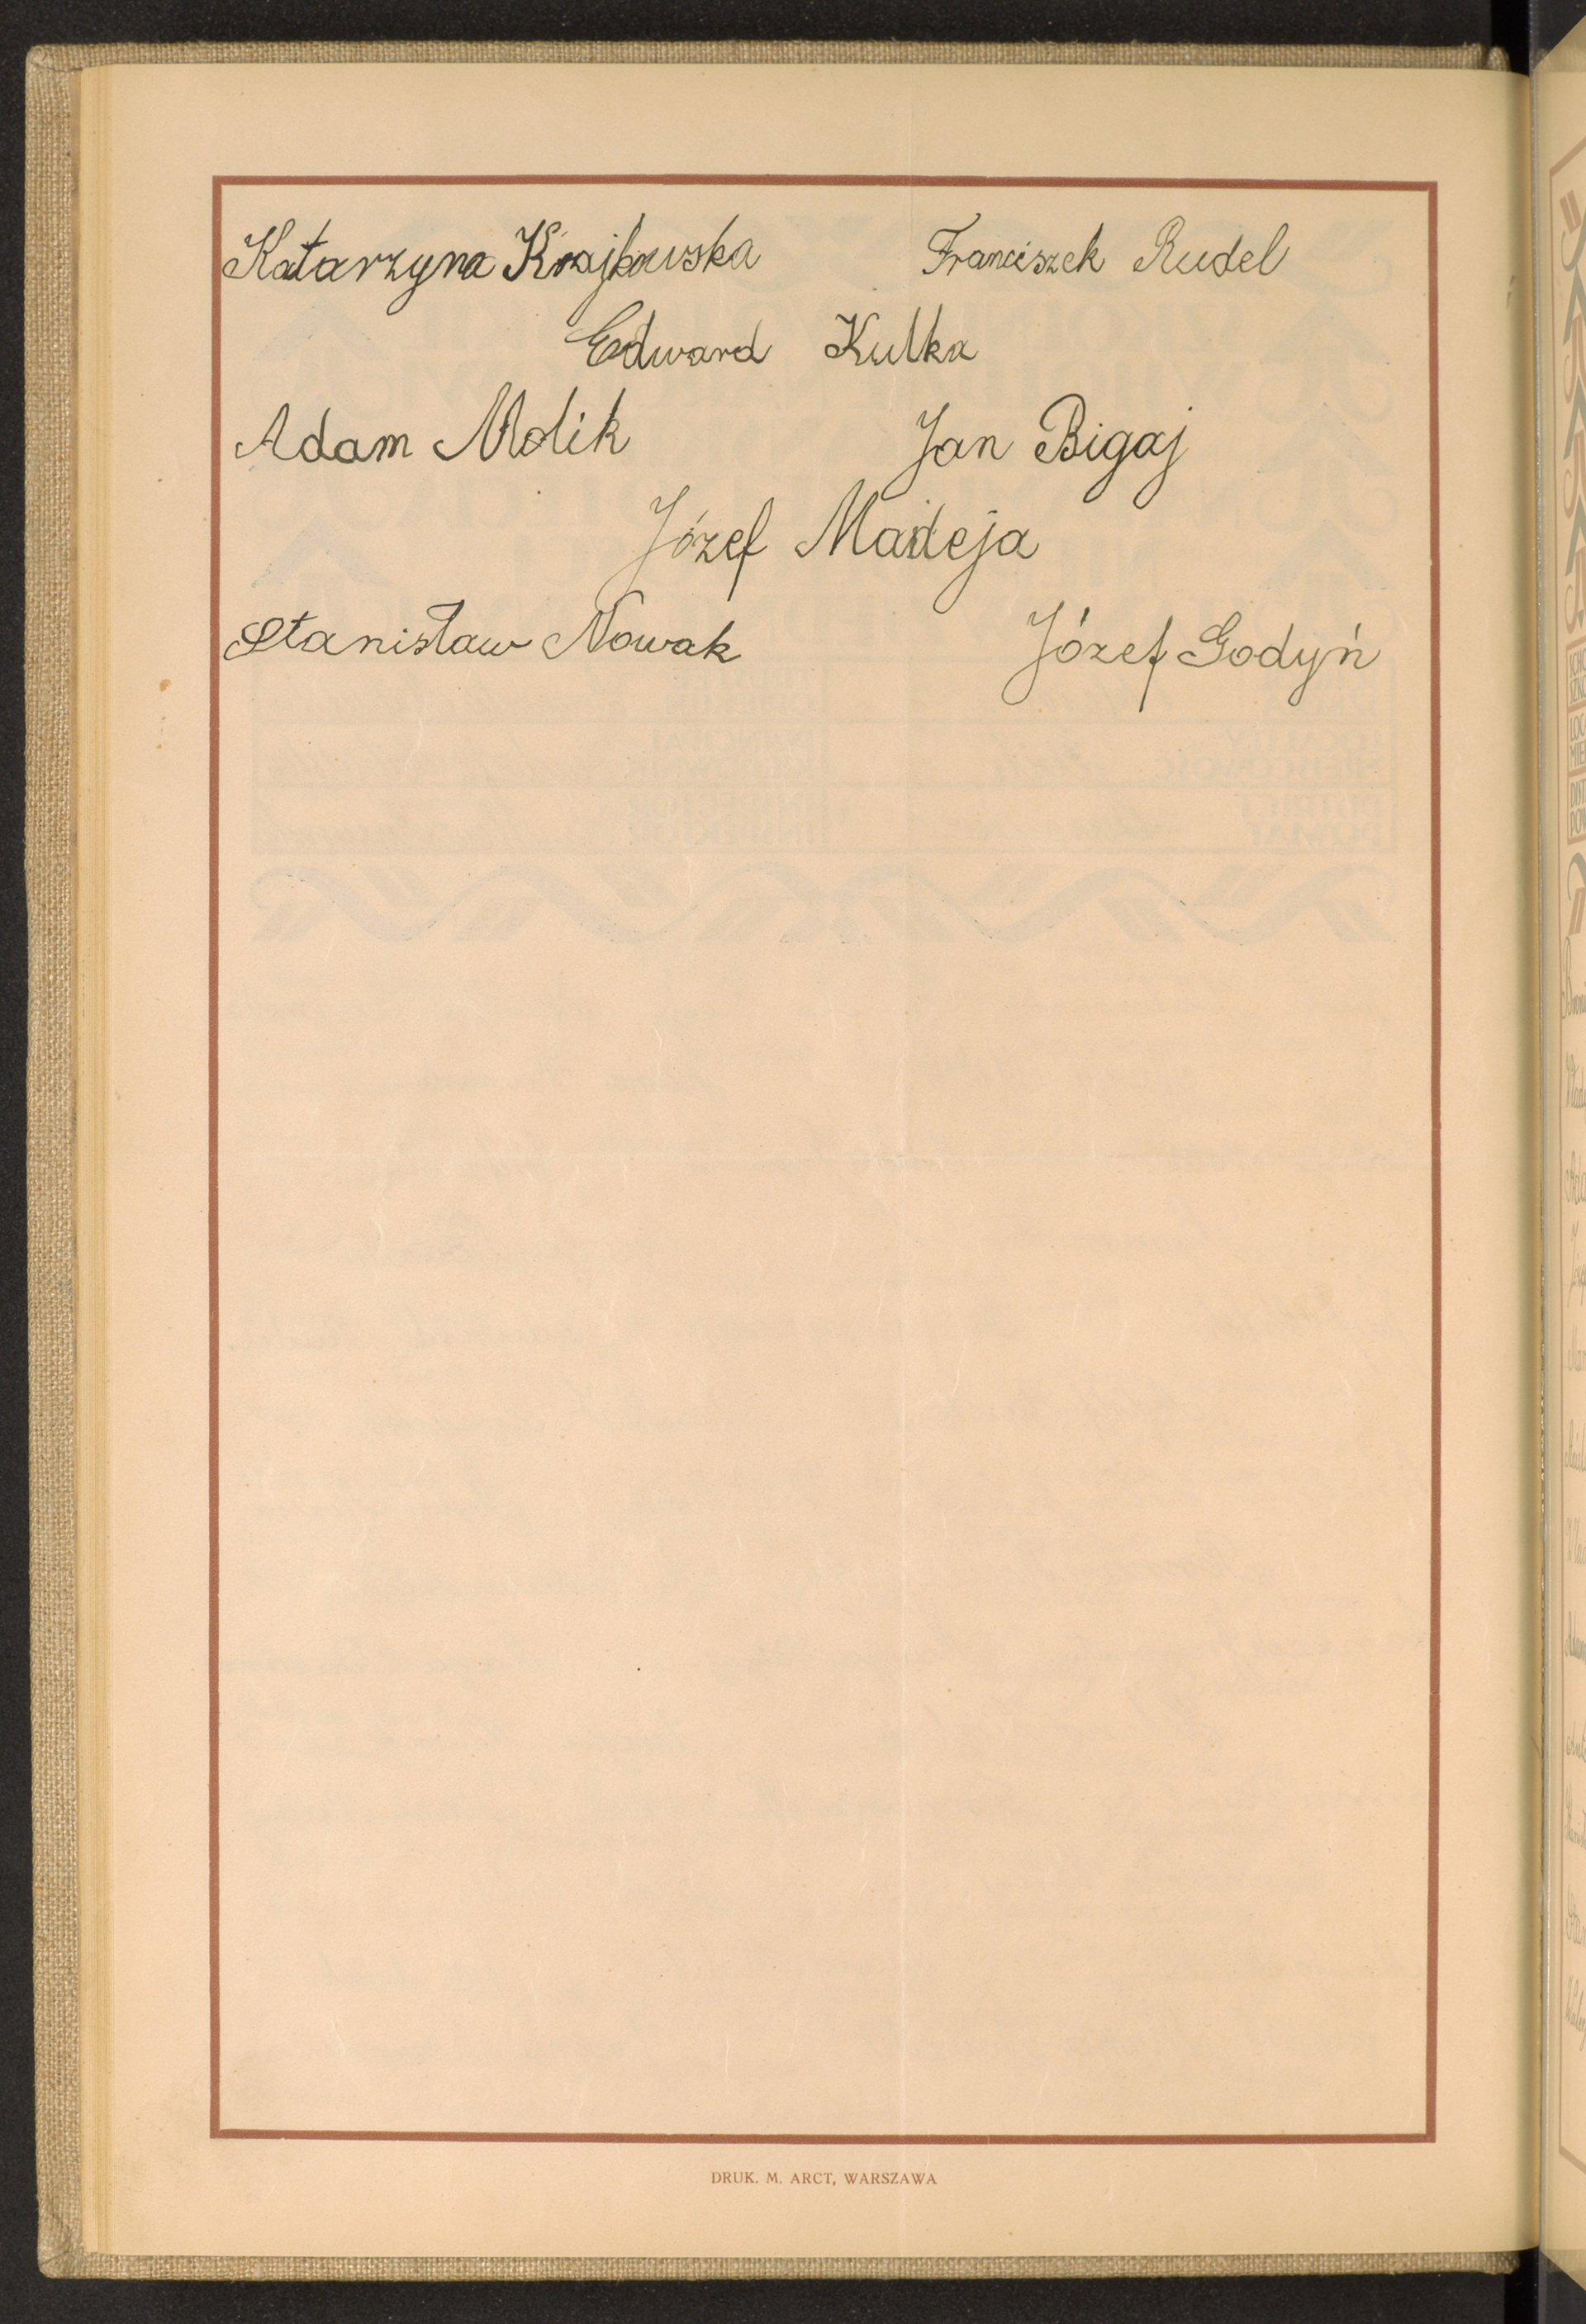 Katarzyna Krajkowska Franciszek Rudel
Edward Kulka
Adam Molik Jan Bigaj
Józef Madeja
Stanisław Nowak Józef Godyń
DRUK. M. ARCT, WARSZAWA